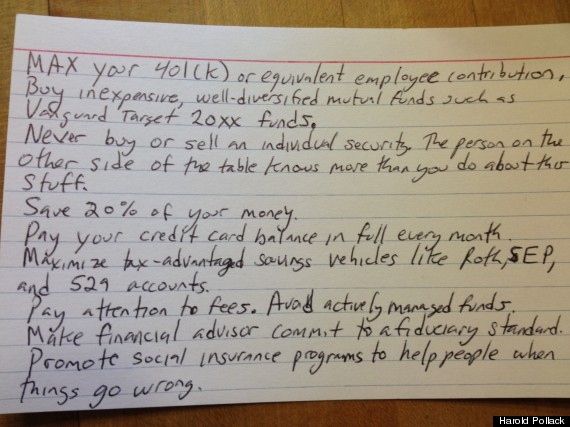 MAX your 401(k) or equivalent employee contribution.
Buy inexpensive, well-diversified mutual funds such as
Vanguard Target 20xx funds.
Never buy or sell an individual security. The person on the
other side of the table knows more than you do about this
stuff.
Save 20% of your money.
Pay your credit card balance in full every month.
Maximize tax-advantaged savings vehicles like Roth, SEP,
and 529 accounts.
Pay attention to fees. Avoid actively managed funds.
Make financial advisor commit to a fiduciary standard.
Promote social insurance programs to help people when
things go wrong.
Harold Pollack